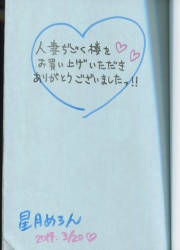 人妻ぢごく棒を♡♡
お買い上げいただき
ありがとうございましたっ!!
星月めろん
2019. 3/20 ♡